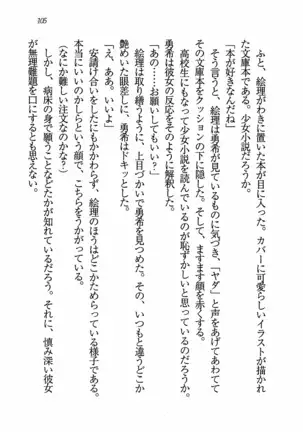 105
ふと、絵理がわきに置いた本が目に入った。カバーに可愛らしいイラストが描かれ
た文庫本である。少女小説だろうか。
「本が好きなんだね」
そう言うと、絵理は勇希が見ているものに気づき、「ヤダ」と声をあげてあわてて
その文庫本をクッションの下に隠した。そして、ますます顔を赤くする。
高校生にもなって少女小説を読んでいるのが恥ずかしいと思っているのだろうか。
勇希は彼女の反応をそのように解釈した。
「あの……お願いしてもいい？」
絵理は縮こまりながら、上目づかいで勇希を見つめた。その、いつもと違うどこか
艶めいた眼差しに、勇希はドキッとした。
「え、ああ。いいよ」
安請け合いをしたにもかかわらず、絵理のほうはどこかためらっている様子である。
本当にいいのかしらという顔で、こちらをうかがっている。
（なにか難しい注文なのかな？）
しかし、病床の身で願うことなどたかが知れているだろう。それに、慎み深い彼女
が無理難題を口にするとも思えない。